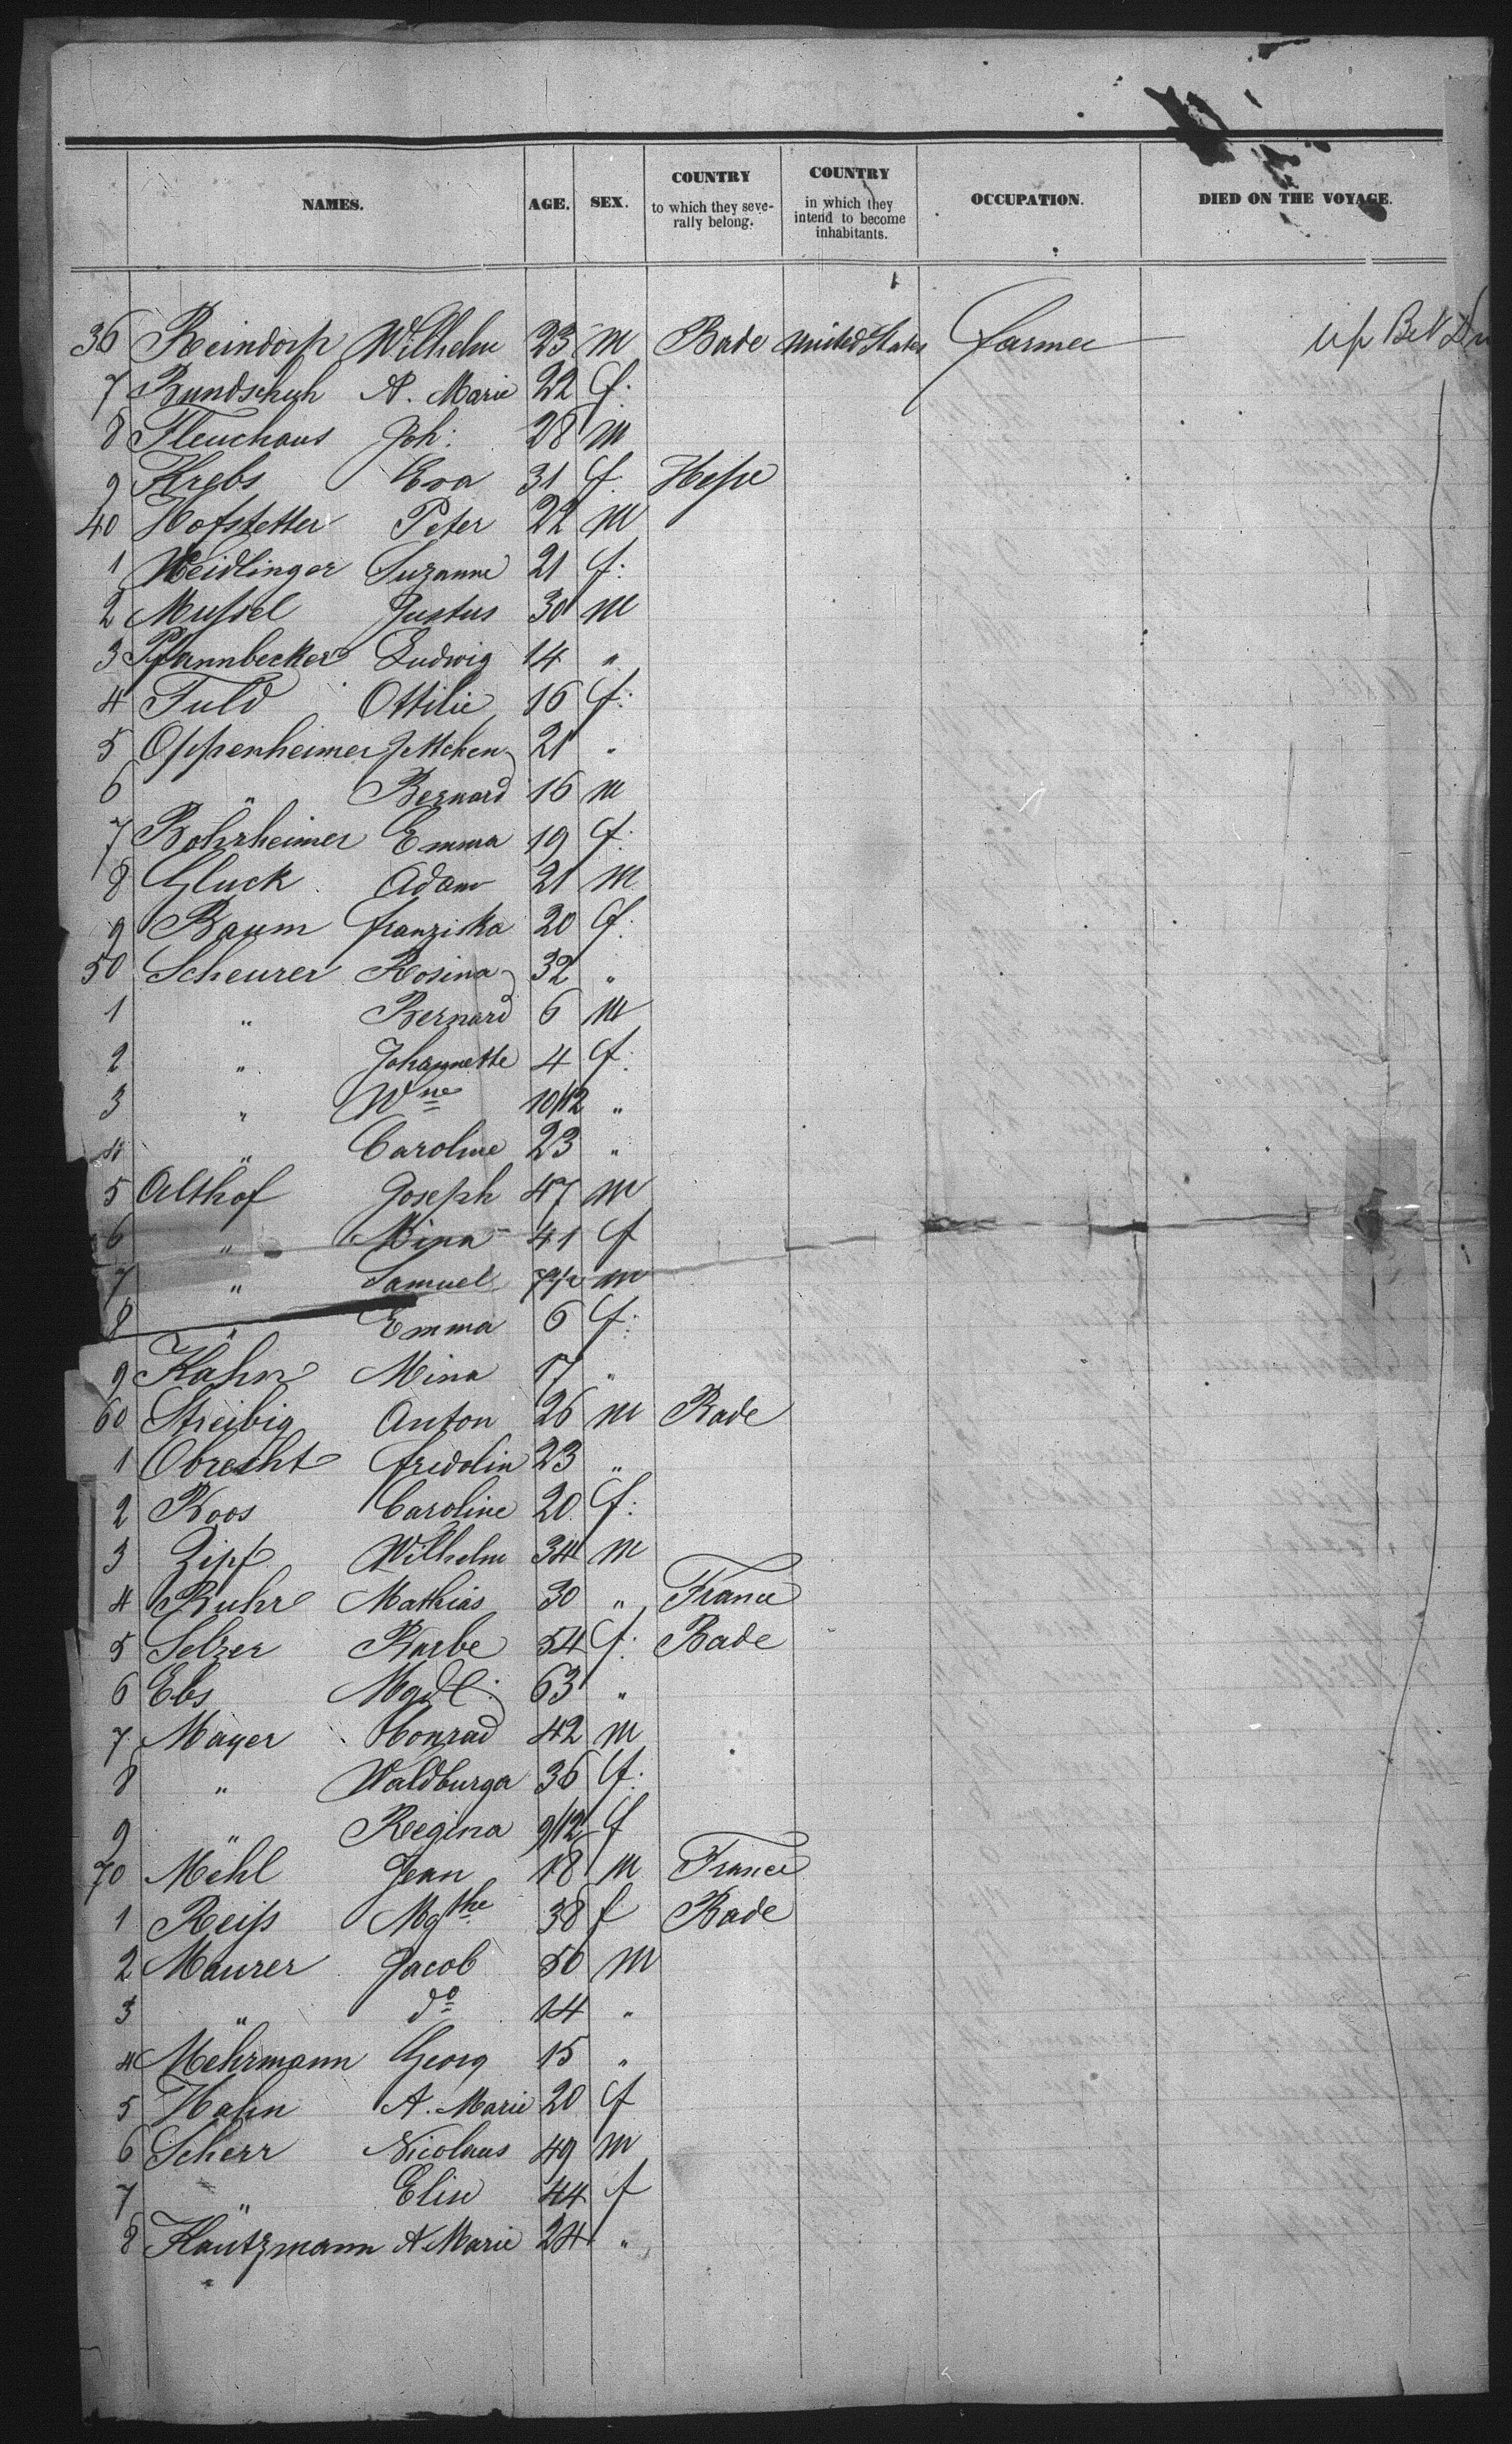 NAMES. AGE. SEX. COUNTRY to which they severally belong. COUNTRY in which they intend to become inhabitants. OCCUPATION. DIED ON THE VOYAGE.
36 Reindorp Wilhelm 23 m Bade united States farmer up Bet D
7 Bundschuh A. Marie 22 f.
8 Fleuchaus Joh: 28 m
9 Krebs Eva 31 f. Hesse
40 Hofstetter Peter 22 m
1 Weidlinger Suzanne 21 f.
2 Mussel Justus 30 m
3 Pfannbecker Ludwig 14 "
4 Fuld Ottilie 16 f.
5 Oppenheimer Jettchen 21 "
6 " Bernard 16 m
7 Bohrheimer Emma 19 f.
8 Gluck Adam 21 m
9 Baum franziska 20 f.
50 Scheurer Rosina 32 "
1 " Bernard 6 m
2 " Johannette 4 f.
3 " Wne 10/12 "
4 " Caroline 23 "
5 Althof Joseph 47 m
6 " Mina 41 f
7 " Samuel m
8 " Emma 6 f.
9 Kahn Mina 17 "
60 Streibig Anton 26 m Bade
1 Obrecht fridolin 23 "
2 Koos Caroline 20 f.
3 Zipf Wilhelm 34 m
4 Ruhr Mathias 30 " France
5 Selzer Barbe 54 f. Bade
6 Ebs Magdl. 63 "
7 Mayer Conrad 42 m
8 " Waldburga 36 f.
9 " Regina 9/12 f
70 Mehl Jean 18 m France
1 Reiss Mgthe 38 f Bade
2 Maurer Jacob 50 m
3 " do 14 "
4 Mehrmann Georg 15 "
5 Hahn A. Marie 20 f
6 Scherr Nicolaus 49 m
7 " Elise 44 f
8 Kautzmann A Marie 24 "